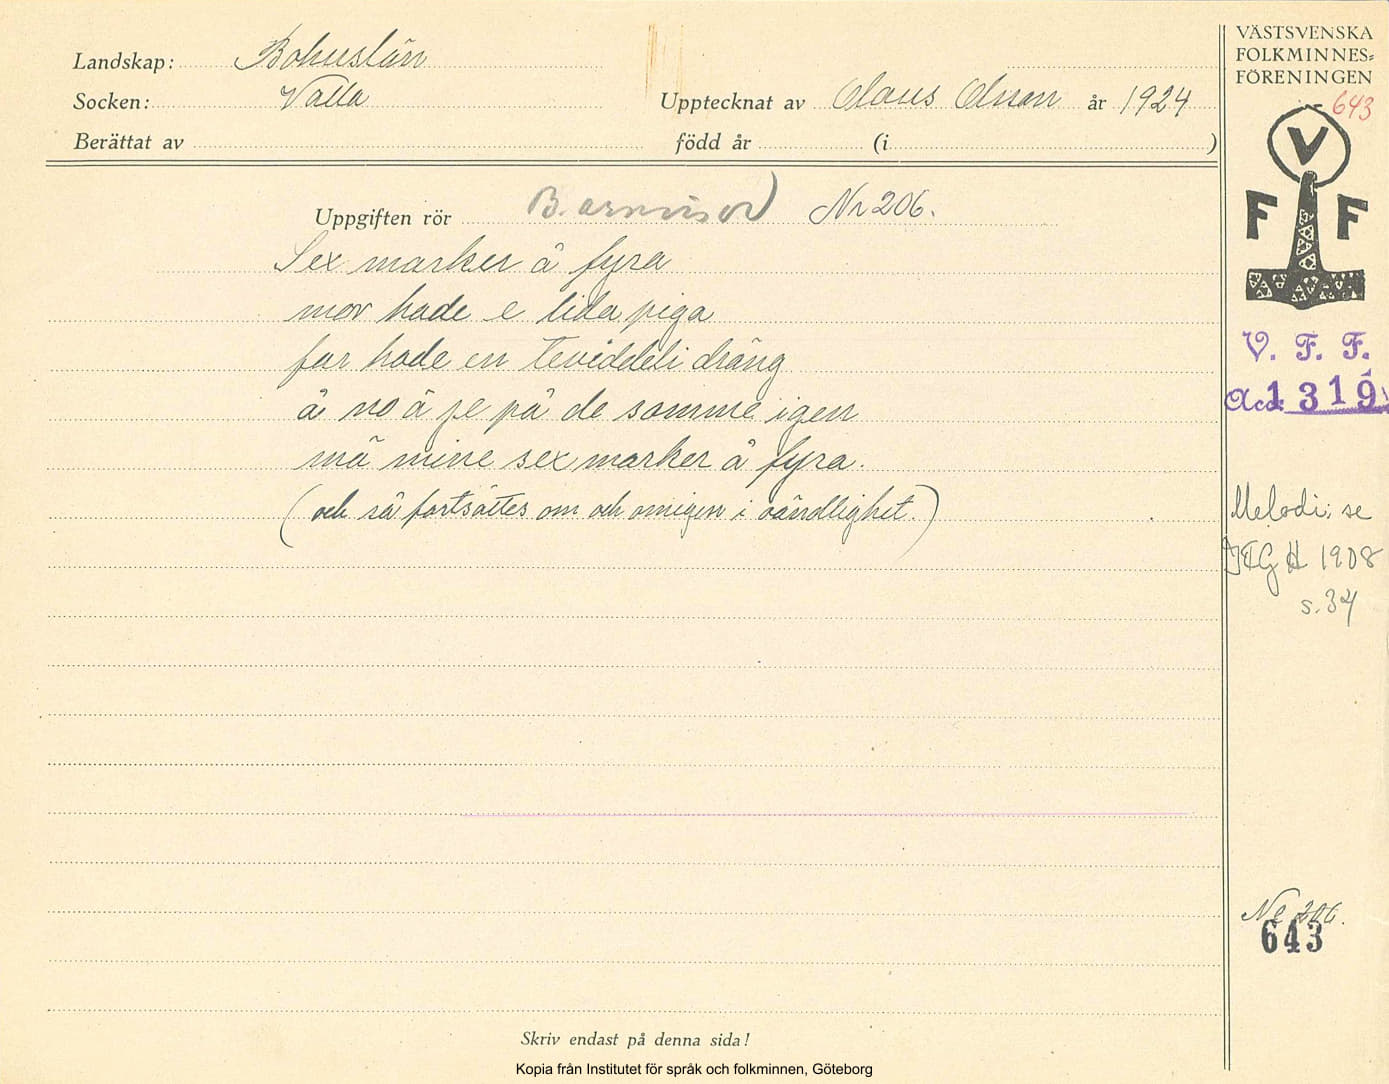 Landskap: Bohuslän
Socken: Valla
Berättat av
Upptecknat av Claus Olsson år 1924
född år (i )
Uppgiften rör B. arnvisor Nr 206.
Sex marker å fyra
mor hade e lida piga
far hade en teviddeli dräng
å no ä je på de somme igen
mä mine sex marker å fyra.
(och så fortsättes om och omigen i oändlighet.)
Skriv endast på denna sida!
Kopia från Institutet för språk och folkminnen, Göteborg
VÄSTSVENSKA
FOLKMINNES-
FÖRENINGEN
643
V
F F
V. F. F.
Acc. 1319
Melodi: se
H 1908
s. 34
Nr 206.
643